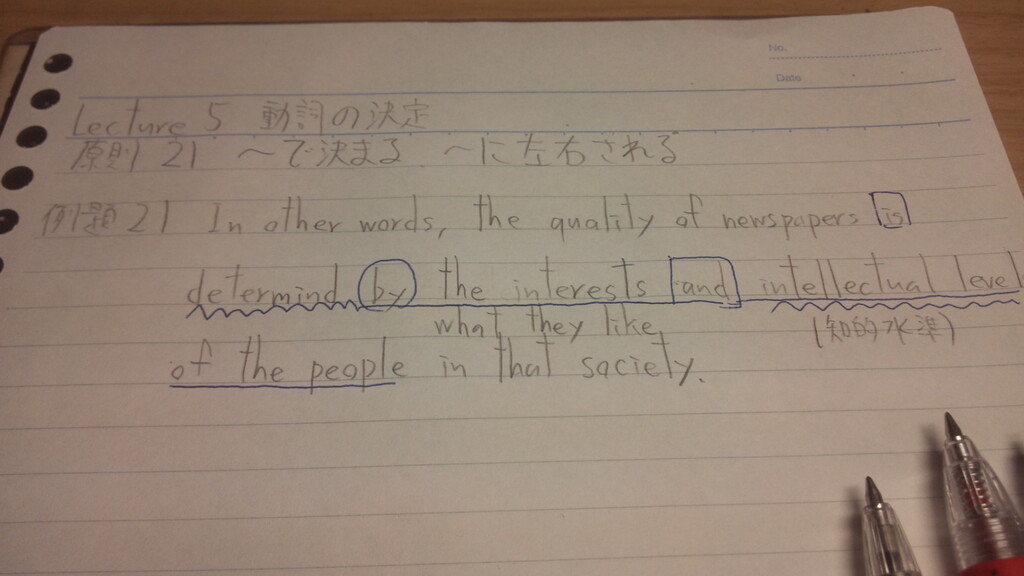 No.
Date
Lecture 5 動詞の決定
原則 21 ～で決まる ～に左右される
例題 21 In other words, the quality of newspapers is
determind by the interests and intellectual level
what they like
(知的水準)
of the people in that saciety.